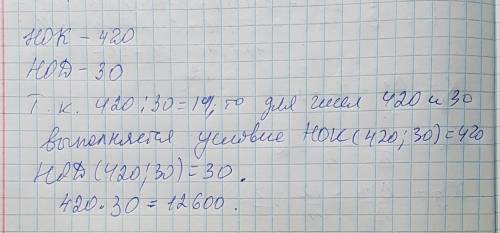 НОК - 420
НОД - 30
Т.к. 420:30=14, то для чисел 420 и 30
выполняется условие НОК(420;30)=420
НОД(420;30)=30.
420·30=12600.